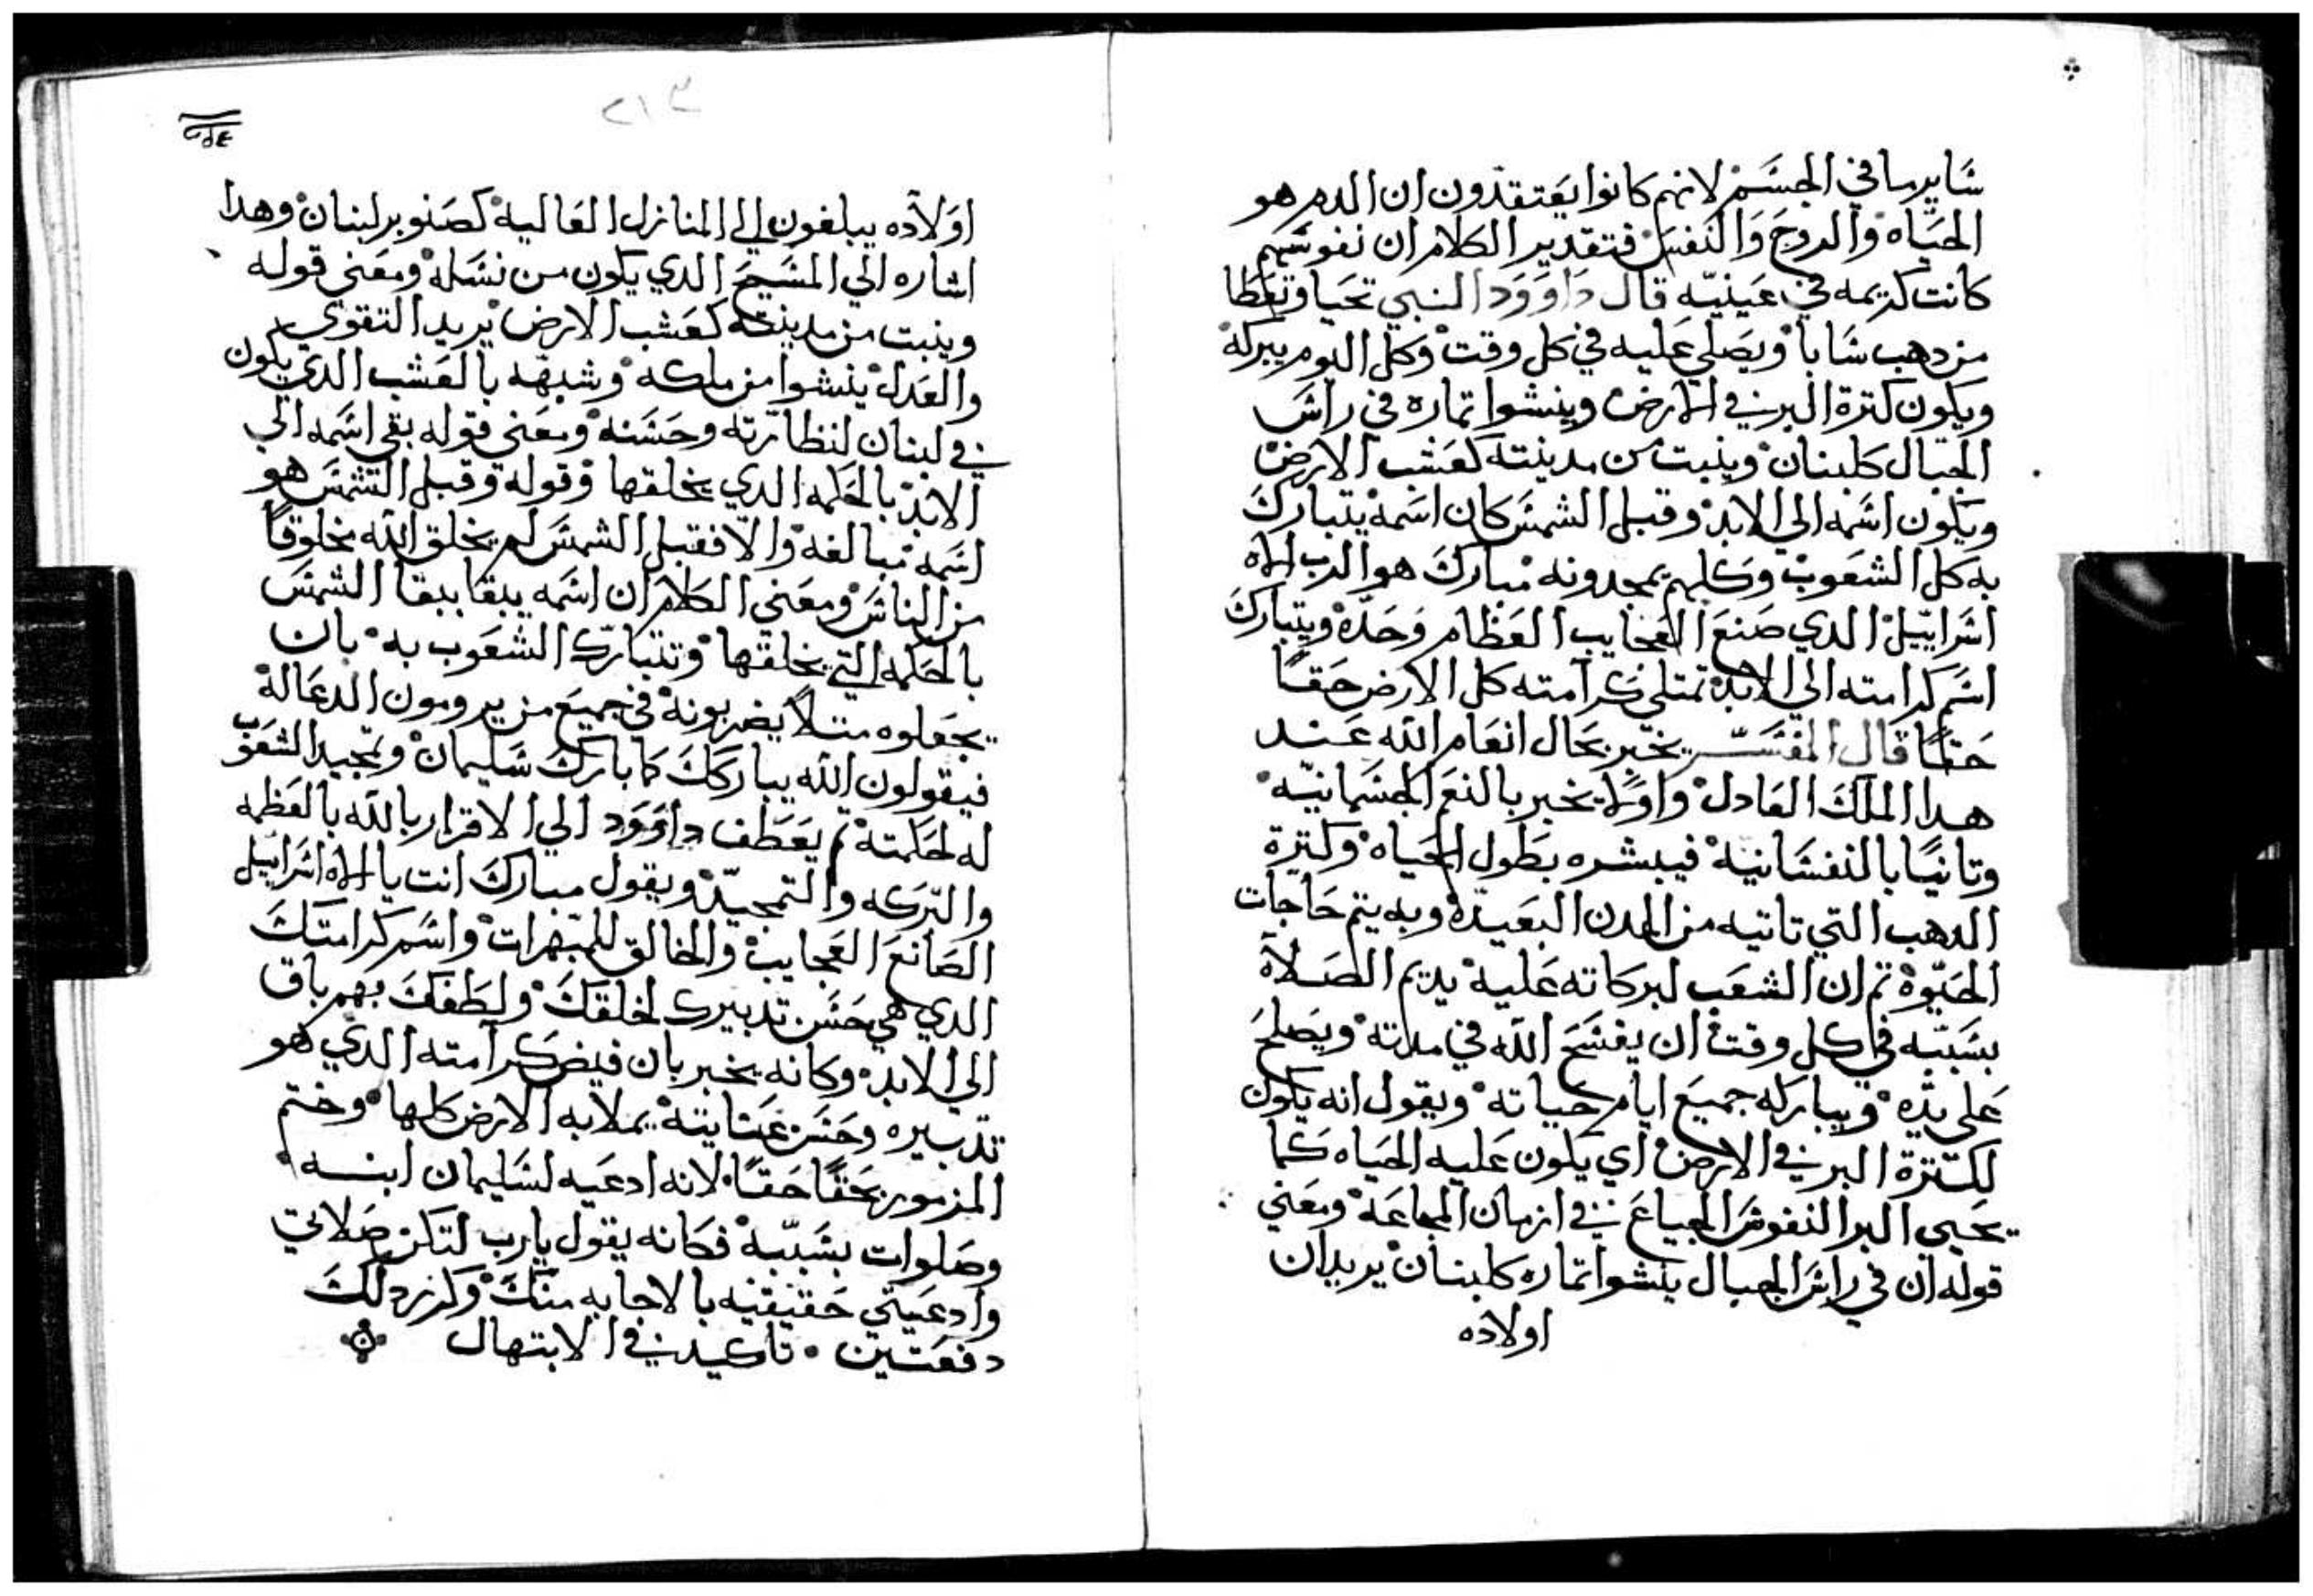 شاير ما في الجسم لانهم كانوا يعتقدون ان الدم هو
الحياه والروح والنفس فتقدير الكلام ان نفوسهم
كانت كريمه في عينيه قال داوود النبي تحيا وتعطا
من دهب شابا ويصلي عليه في كل وقت وكل اليوم يبركه
ويكون كترة البر في الارض وينشوا تماره في راس
الجبال كلبنان وينبت من مدينته كعشب الارض
ويكون اسمه الي الابد وقبل الشمس كان اسمه يتبارك
به كل الشعوب وكلهم يمجدونه مبارك هو الرب الاه
اسراييل الدي صنع العجايب العظام وحده ويتبارك
اسم كرامته الي الابد تمتلي كرامته كل الارض حقا
حقا قال المفسر يخبر بحال انعام الله عند
هدا الملك العادل واولا يخبر بالنعم الجسمانيه
وتانيا بالنفسانيه فيبشره بطول الحياه وكترة
الدهب التي تاتيه من المدن البعيده وبه يتم حاجات
الحيوه تم ان الشعب لبركاته عليه يديم الصلاة
بسببه في كل وقت ان يفسح الله في مدته ويصلح
علي يده ويباركه جميع ايام حياته ويقول انه يكون
لكترة البر في الارض اي يكون عليه الحياه كما
يحيي البر النفوس الجياع في ازمان المجاعه ومعني
قوله ان في راس الجبال ينشوا تماره كلبنان يريد ان
اولاده
٢١٣
اولاده يبلغون الي المنازل العاليه كصنوبر لبنان وهدا
اشاره الي المسيح الدي يكون من نسله ومعني قوله
وينبت من مدينته كعشب الارض يريد التقوي
والعدل ينشوا من ملكه وشبهه بالعشب الدي يكون
في لبنان لنظارته وحسنه ومعني قوله بقي اسمه الي
الابد بالحكمه الدي يخلقها وقوله وقبل الشمس هو
اسمه مبالغه والا فقبل الشمس لم يخلق الله مخلوقا
من الناس ومعني الكلام ان اسمه يبقا ببقا الشمس
بالحكمه التي يخلقها وتتبارك الشعوب به بان
يجعلوه متلا يضربونه في جميع من يرومون الدعا له
فيقولون الله يباركك كما بارك سليمان وتمجيد الشعوب
له لحكمته تم يعطف داوود الي الاقرار بالله بالعظمه
والبركه والتمجيد ويقول مبارك انت يا الاه اسراييل
الصانع العجايب والخالق للمبهرات واسم كرامتك
الدي هي حسن تدبيرك لخلقك ولطفك بهم باق
الي الابد وكانه يخبر بان فيض كرامته الدي هو
تدبيره وحسن عنايته يملا به الارض كلها وختم
المزمور بحقا حقا لانه ادعيه لسليمان ابنه
وصلوات بسببه فكانه يقول يارب لتكن صلاتي
وادعيتي حقيقيه بالاجابه منك وكرر دلك
دفعتين تاكيد في الابتهال